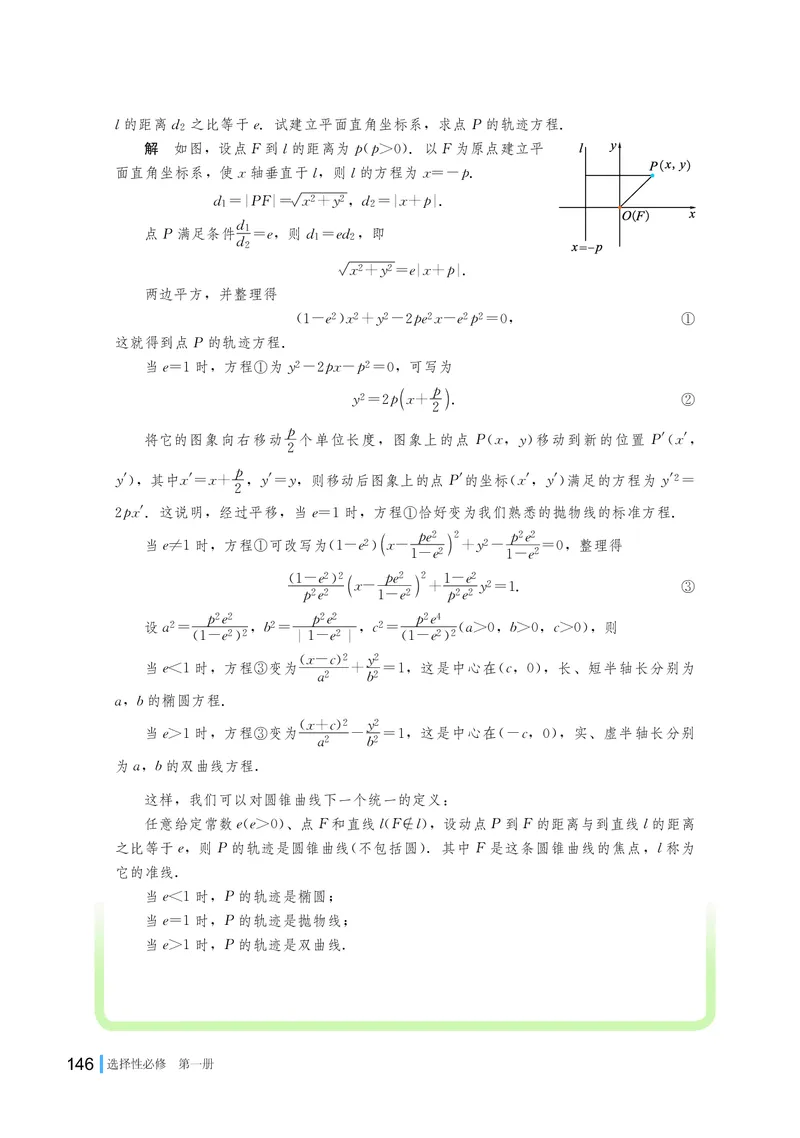 l的距离d₂之比等于e. 试建立平面直角坐标系，求点P的轨迹方程.
解 如图，设点F到l的距离为p(p>0). 以F为原点建立平
面直角坐标系，使x轴垂直于l，则l的方程为x=-p.
d₁=|PF|=√(x²+y²)，d₂=|x+p|.
点P满足条件d₁/d₂=e，则d₁=ed₂，即
√(x²+y²)=e|x+p|.
l
y
P(x, y)
O(F)
x
x=-p
两边平方，并整理得
(1-e²)x²+y²-2pe²x-e²p²=0， ①
这就得到点P的轨迹方程.
当e=1时，方程①为y²-2px-p²=0，可写为
y²=2p(x+p/2). ②
将它的图象向右移动p/2个单位长度，图象上的点P(x，y)移动到新的位置P′(x′，
y′)，其中x′=x+p/2，y′=y，则移动后图象上的点P′的坐标(x′，y′)满足的方程为y′²=
2px′. 这说明，经过平移，当e=1时，方程①恰好变为我们熟悉的抛物线的标准方程.
当e≠1时，方程①可改写为(1-e²)(x-pe²/(1-e²))²+y²-p²e²/(1-e²)=0，整理得
(1-e²)²/(p²e²)(x-pe²/(1-e²))²+(1-e²)/(p²e²)y²=1. ③
设a²=p²e²/(1-e²)²，b²=p²e²/|1-e²|，c²=p²e⁴/(1-e²)²(a>0，b>0，c>0)，则
当e<1时，方程③变为(x-c)²/a²+y²/b²=1，这是中心在(c，0)，长、短半轴长分别为
a，b的椭圆方程.
当e>1时，方程③变为(x+c)²/a²-y²/b²=1，这是中心在(-c，0)，实、虚半轴长分别
为a，b的双曲线方程.
这样，我们可以对圆锥曲线下一个统一的定义：
任意给定常数e(e>0)、点F和直线l(F∉l)，设动点P到F的距离与到直线l的距离
之比等于e，则P的轨迹是圆锥曲线(不包括圆). 其中F是这条圆锥曲线的焦点，l称为
它的准线.
当e<1时，P的轨迹是椭圆；
当e=1时，P的轨迹是抛物线；
当e>1时，P的轨迹是双曲线.
146 选择性必修 第一册